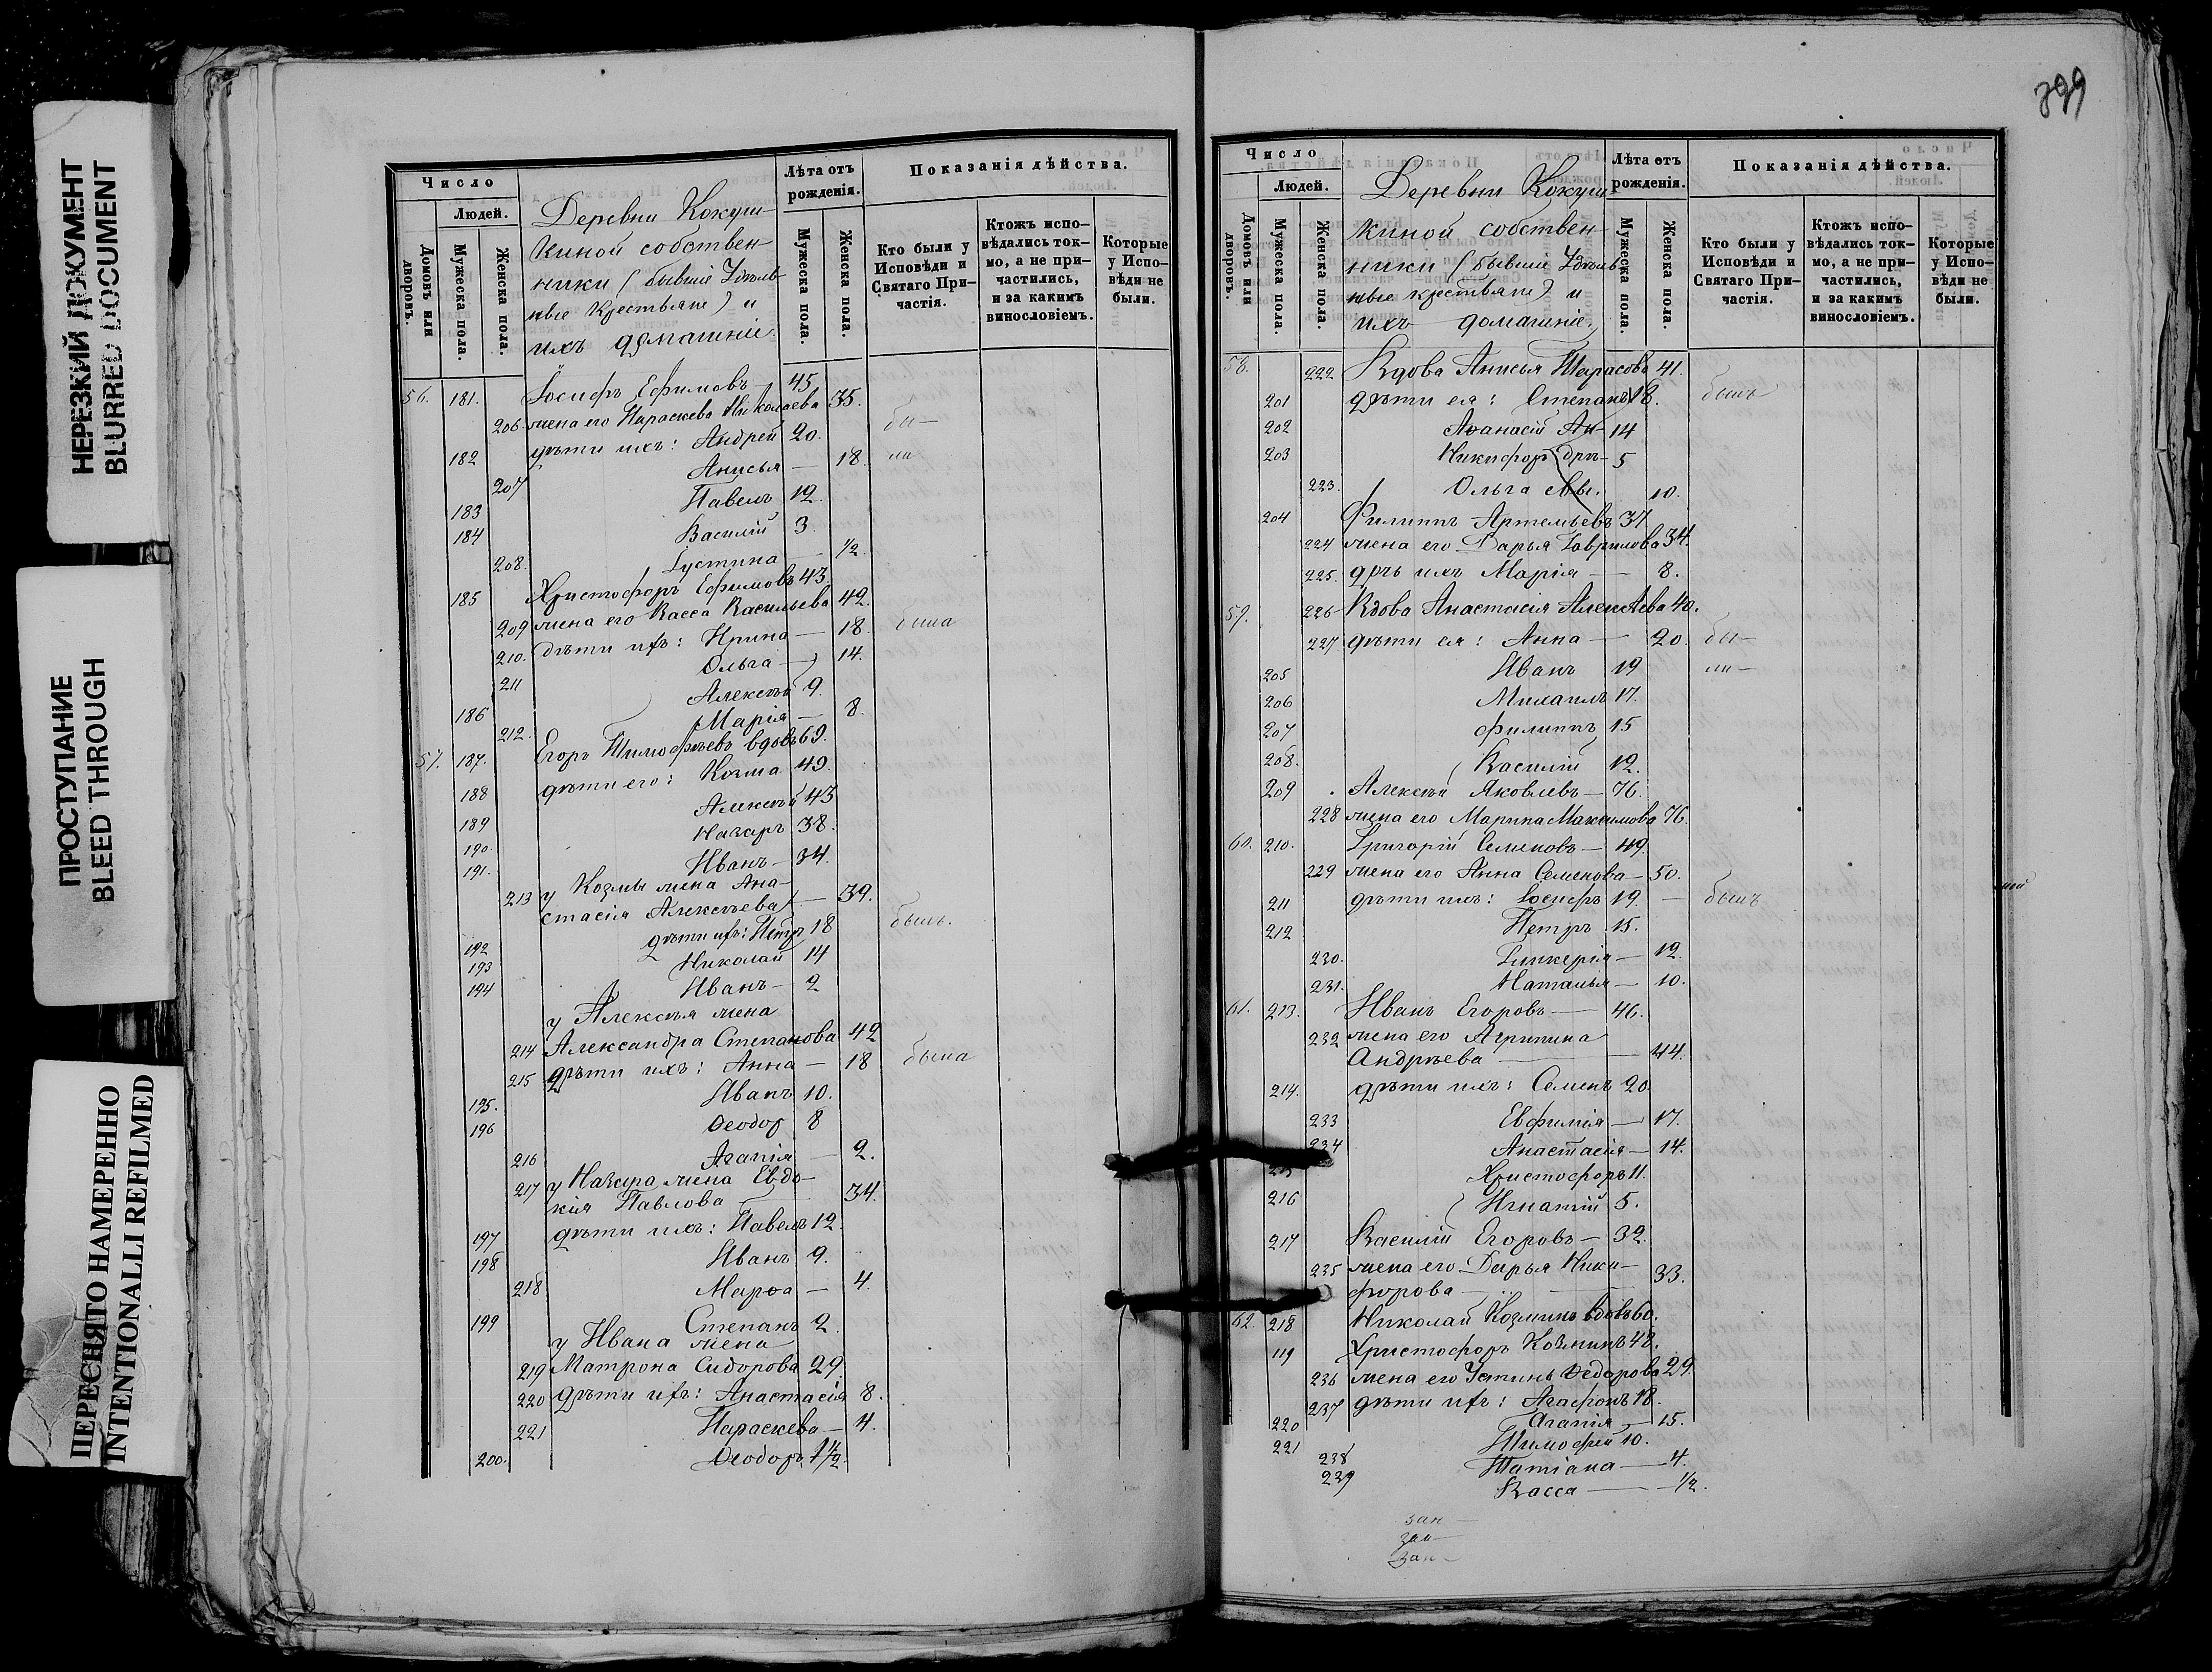 НЕРЕЗКИЙ ДОКУМЕНТ
BLURRED DOCUMENT
ПРОСТУПАНИЕ
BLEED THROUGH
ПЕРЕСНЯТО НАМЕРЕННО
INTENTIONALLI REFILMED
Число
Людей.
Домовъ или дворовъ.
Мужеска пола.
Женска пола.
Деревни Кокуш-
киной собствен-
ники (бывшіе Удѣль-
ные Крестьяне) и
ихъ домашніе.
Лѣта отъ рожденія.
Мужеска пола.
Женска пола.
Показанія дѣйства.
Кто были у Исповѣди и Святаго При-частія.
Ктожъ испо-вѣдались ток-мо, а не при-частились, и за какимъ винословіемъ.
Которые у Испо-вѣди не были.
56. 181. Іосифъ Ефимовъ 45
206. жена его Параскева Николаева 35. бы-
182 дѣти ихъ: Андрей 20. ли
207 Анисья — 18.
183 Павелъ 12.
184 Василій 3.
208. Іустина — 1/2
185 Христофоръ Ефимовъ 43
209 жена его Васса Васильева 42.
210. дѣти ихъ: Ирина — 18. была
211 Ольга — 14.
186 Алексѣй 9.
212. Марія — 8.
57. 187. Егоръ Тимофѣевъ вдовъ 69.
188 дѣти его: Козма 49.
189 Алексѣй 43
190. Назаръ 38.
191. Иванъ — 34.
213 у Козмы жена Ана-
стасія Алексѣева — 39.
192 дѣти ихъ: Петръ 18 былъ.
193 Николай 14
194 Иванъ — 2
у Алексѣя жена
214 Александра Степанова 42
215 дѣти ихъ: Анна — 18 была
195. Иванъ 10.
196 Ѳеодоръ 8
216 Агапія — 2.
217 у Назара жена Евдо-
кія Павлова 34.
197 дѣти ихъ: Павелъ 12.
198 Иванъ 9.
218 Марѳа — 4.
199 Степанъ 2.
у Ивана жена
219 Матрона Сидорова 29.
220 дѣти ихъ: Анастасія 8.
221 Параскева — 4.
200. Ѳеодоръ 1 1/2.
Число
Людей.
Домовъ или дворовъ.
Мужеска пола.
Женска пола.
Деревни Кокуш-
киной собствен-
ники (бывшіе Удѣль-
ные крестьяне) и
ихъ домашніе.
Лѣта отъ рожденія.
Мужеска пола.
Женска пола.
Показанія дѣйства.
Кто были у Исповѣди и Святаго При-частія.
Ктожъ испо-вѣдались ток-мо, а не при-частились, и за какимъ винословіемъ.
Которые у Испо-вѣди не были.
58. 222. Вдова Анисья Тарасова 41.
201 дѣти ея: Степанъ 18. былъ
202 Аѳанасій Ан- 14
203 Никифоръ дрѣ- 5
223. Ольга евы. 10.
204 Филиппъ Артемьевъ 37
224 жена его Дарья Гаврилова 34.
225. дочь ихъ Марія — 8.
59. 226 Вдова Анастасія Алексѣева 40.
227 дѣти ея: Анна — 20. бы-
205 Иванъ 19 ли-
206 Михаилъ 17.
207 Филиппъ 15
208. Василій 12.
209 Алексѣй Яковлевъ — 76.
228 жена его Марина Максимова 76.
60. 210. Григорій Семеновъ — 49.
229 жена его Анна Семенова — 50.
211 дѣти ихъ: Іосифъ 19. — былъ
212 Петръ 15.
230. Гликерія — 12.
231. Наталья — 10.
61. 213. Иванъ Егоровъ — 46.
232 жена его Агрипина
Андрѣева — 44.
214. дѣти ихъ: Семенъ 20.
233 Евфимія — 17.
234 Анастасія — 14.
215 Христофоръ 11.
216 Игнатій 5.
217 Василій Егоровъ — 32.
235 жена его Дарья Ники-
форова — 33.
62. 218 Николай Козминъ вдовъ 60.
119 Христофоръ Козминъ 48.
236 жена его Устинья Ѳедорова 29.
237 дѣти ихъ: Агафонъ 18.
220 Агапія — 15.
221 Тимофей 10.
238 Татіана — 4.
239 Васса — 1/2.
зан-
зан-
зан-